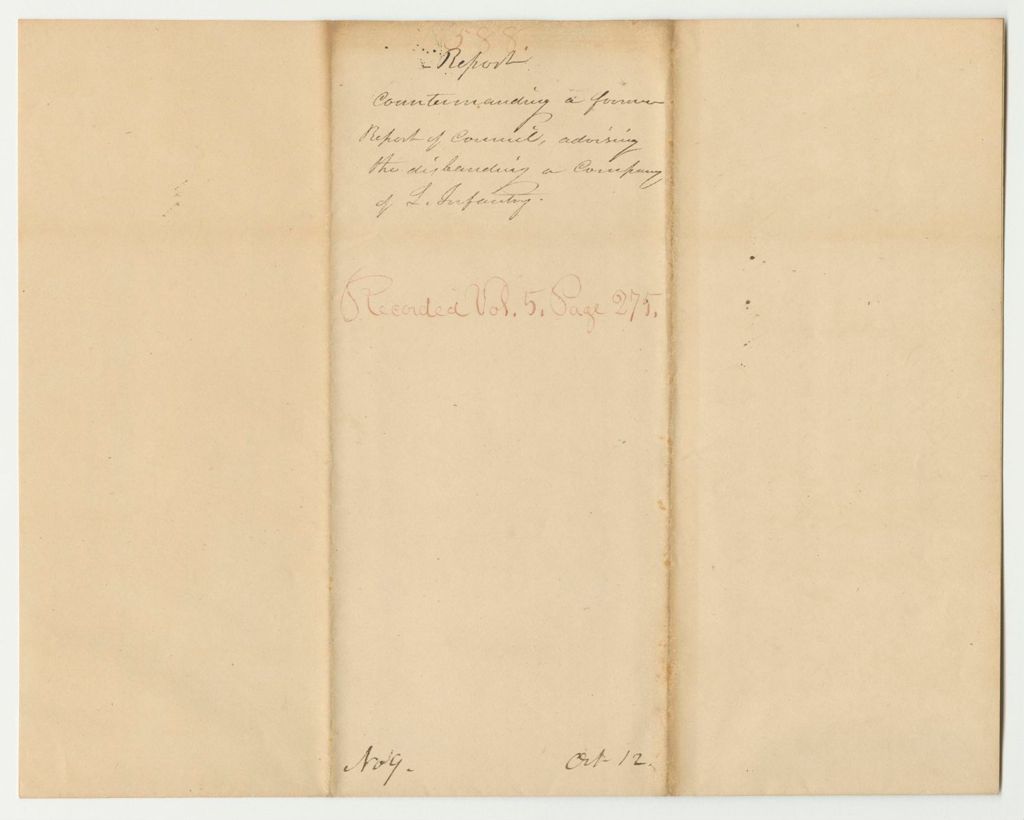 588
Report
Countermanding a former
Report of Council, advising
the disbanding a Company
of L. Infantry.
Recorded Vol. 5. Page 275.
No 9.
Oct- 12.